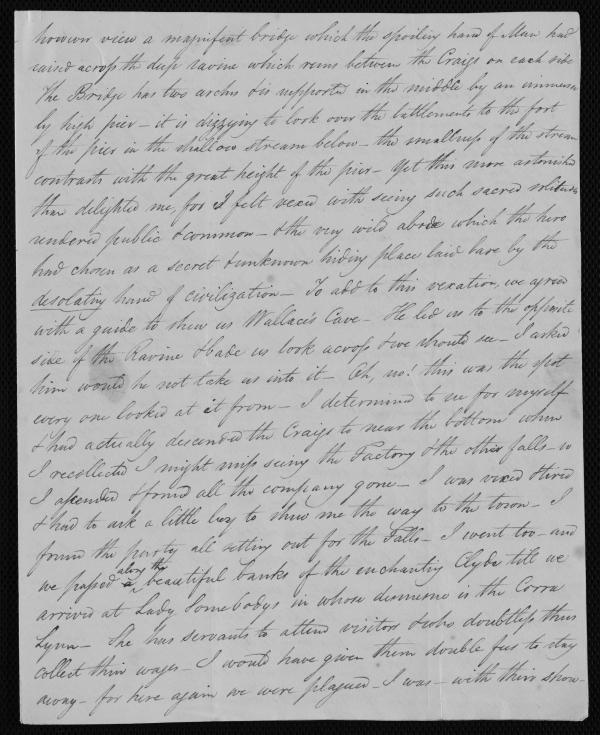 however view a magnifent bridge which the spoiling hand of Man had
raised across the deep ravine which runs between the Craigs on each side
The Bridge has two arches & is supported in the middle by an immense
ly high pier – it is dizzying to look over the battlements to the foot
of the pier in the shallow stream below – the smallness of the stream
contrasts with the great height of the pier – Yet this more astonished
than delighted me, for I felt vexed with seeing such sacred solitudes
rendered public & common – & the very wild abode which the hero
had chosen as a secret & unknown hiding place laid bare by the
desolating hand of civilization – To add to this vexation, we agreed
with a guide to shew us Wallace's Cave – He led us to the opposite
side of the Ravine & bade us look across & we should see – I asked
him would he not take us into it – Oh, no! this was the spot
every one looked at it from – I determined to see for myself
& had actually descended the Craigs to near the bottom when
I recollected I might miss seeing the Factory & the other falls – so
I ascended & found all the company gone – I was vexed & tired
& had to ask a little boy to shew me the way to the town – I
found the party all setting out for the Falls – I went too – and
we passed along the beautiful banks of the enchanting Clyde till we
arrived at Lady Somebodys in whose demesne is the Corra
Lynn – She has servants to attend visitors & who doubtless thus
collect their wages – I would have given them double fees to stay
away – for here again we were plagued – I was – with their show-